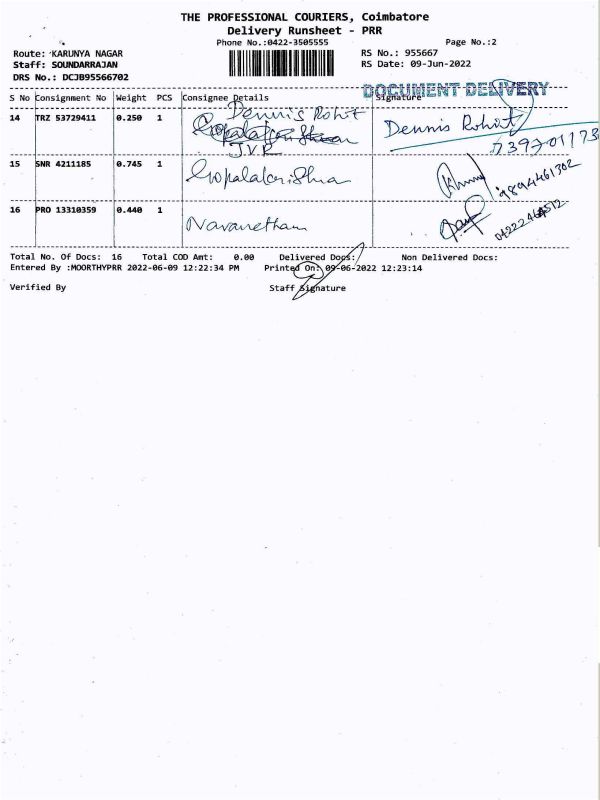 THE PROFESSIONAL COURIERS, Coimbatore
Delivery Runsheet - PRR
Phone No.:0422-3505555 Page No.:2
Route: KARUNYA NAGAR RS No.: 955667
Staff: SOUNDARRAJAN RS Date: 09-Jun-2022
DRS No.: DCJB95566702
DOCUMENT DELIVERY
S No Consignment No Weight PCS Consignee Details Signature
14 TRZ 53729411 0.250 1 Dennis Rohit Dennis Rohit
Gopalakrishnan
JVR
15 SNR 4211185 0.745 1 Gopalakrishna 9894461302
16 PRO 13310359 0.440 1 Navanetham
Total No. Of Docs: 16 Total COD Amt: 0.00 Delivered Docs: Non Delivered Docs:
Entered By :MOORTHYPRR 2022-06-09 12:22:34 PM Printed On: 09-06-2022 12:23:14
Verified By Staff Signature